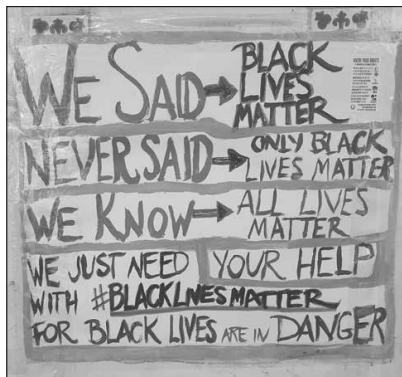 WE SAID → BLACK LIVES MATTER
NEVER SAID → ONLY BLACK LIVES MATTER
WE KNOW → ALL LIVES MATTER
WE JUST NEED YOUR HELP
WITH #BLACKLIVESMATTER
FOR BLACK LIVES ARE IN DANGER
KNOW YOUR RIGHTS